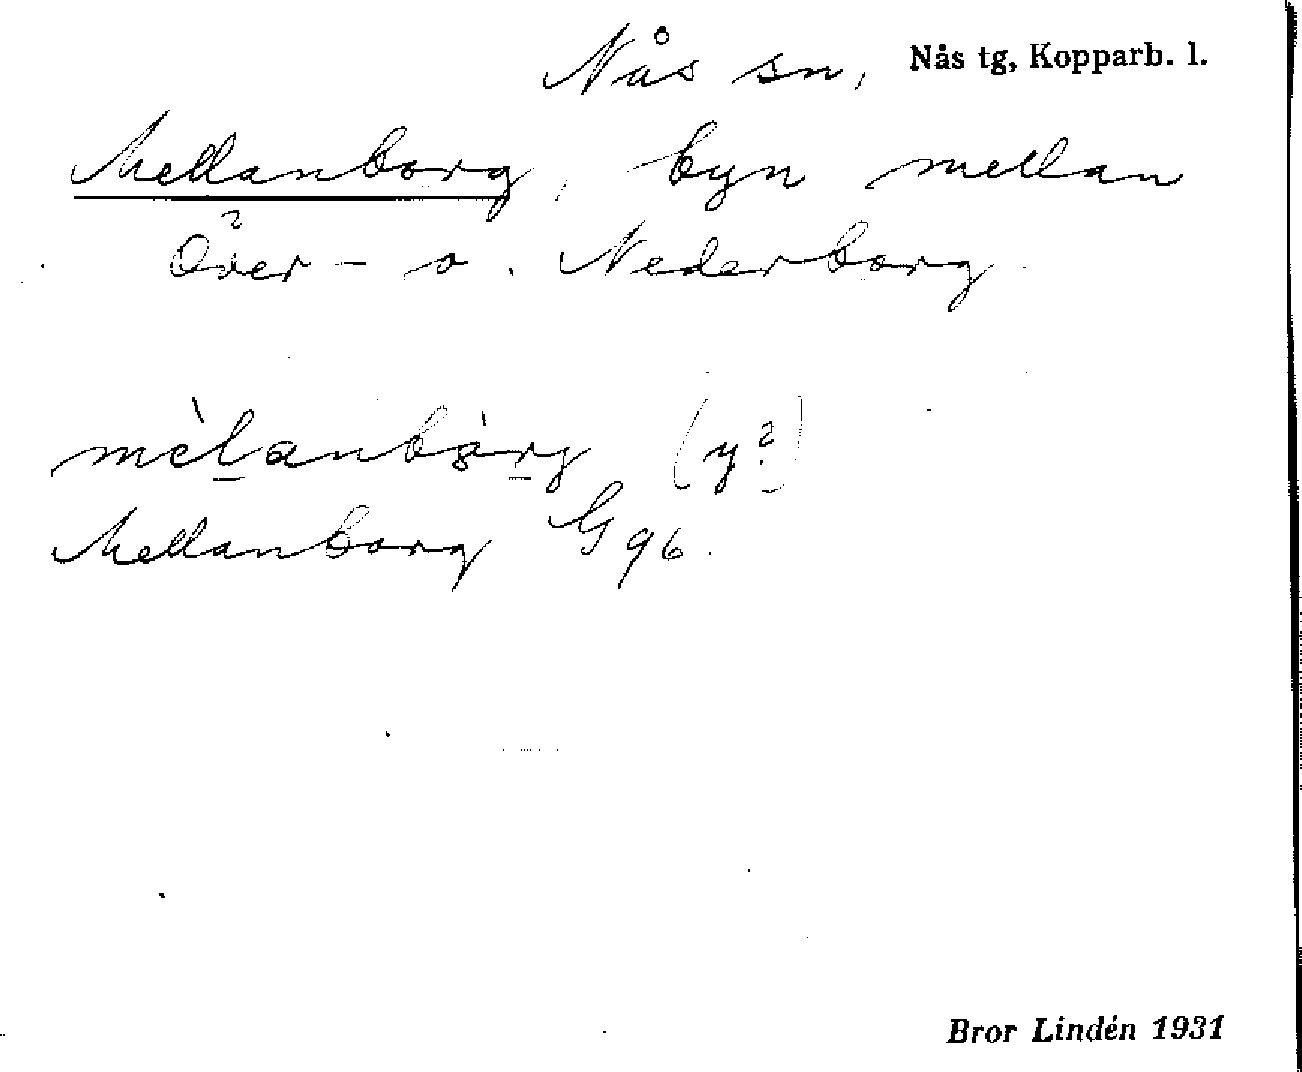 Nås sn, Nås tg, Kopparb. l.
Mellanborg, byn mellan
Över- o. Nederborg.
mèlanbårg (y?)
Mellanborg G 96.
Bror Lindén 1931